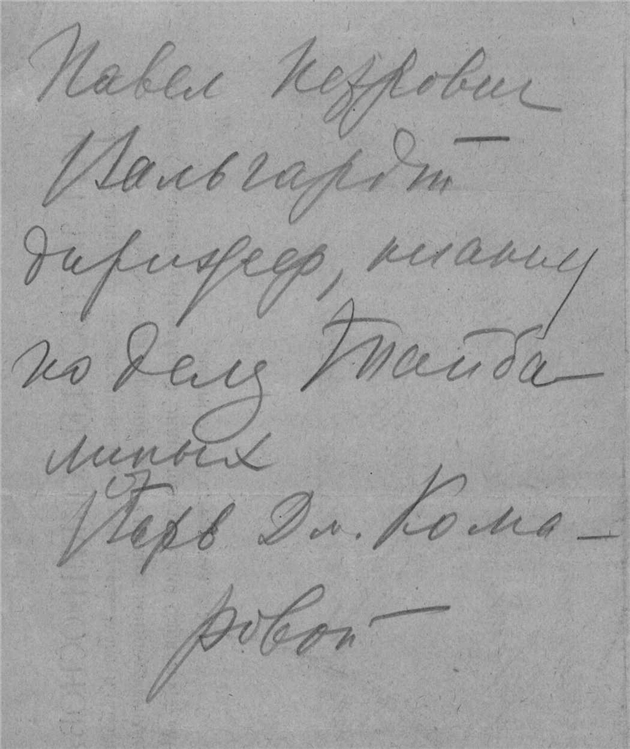 Павел Петрович
Вальгардт
дирижер, пианист
по делу Тайба-
линых
Варв Дм. Кома-
ровой